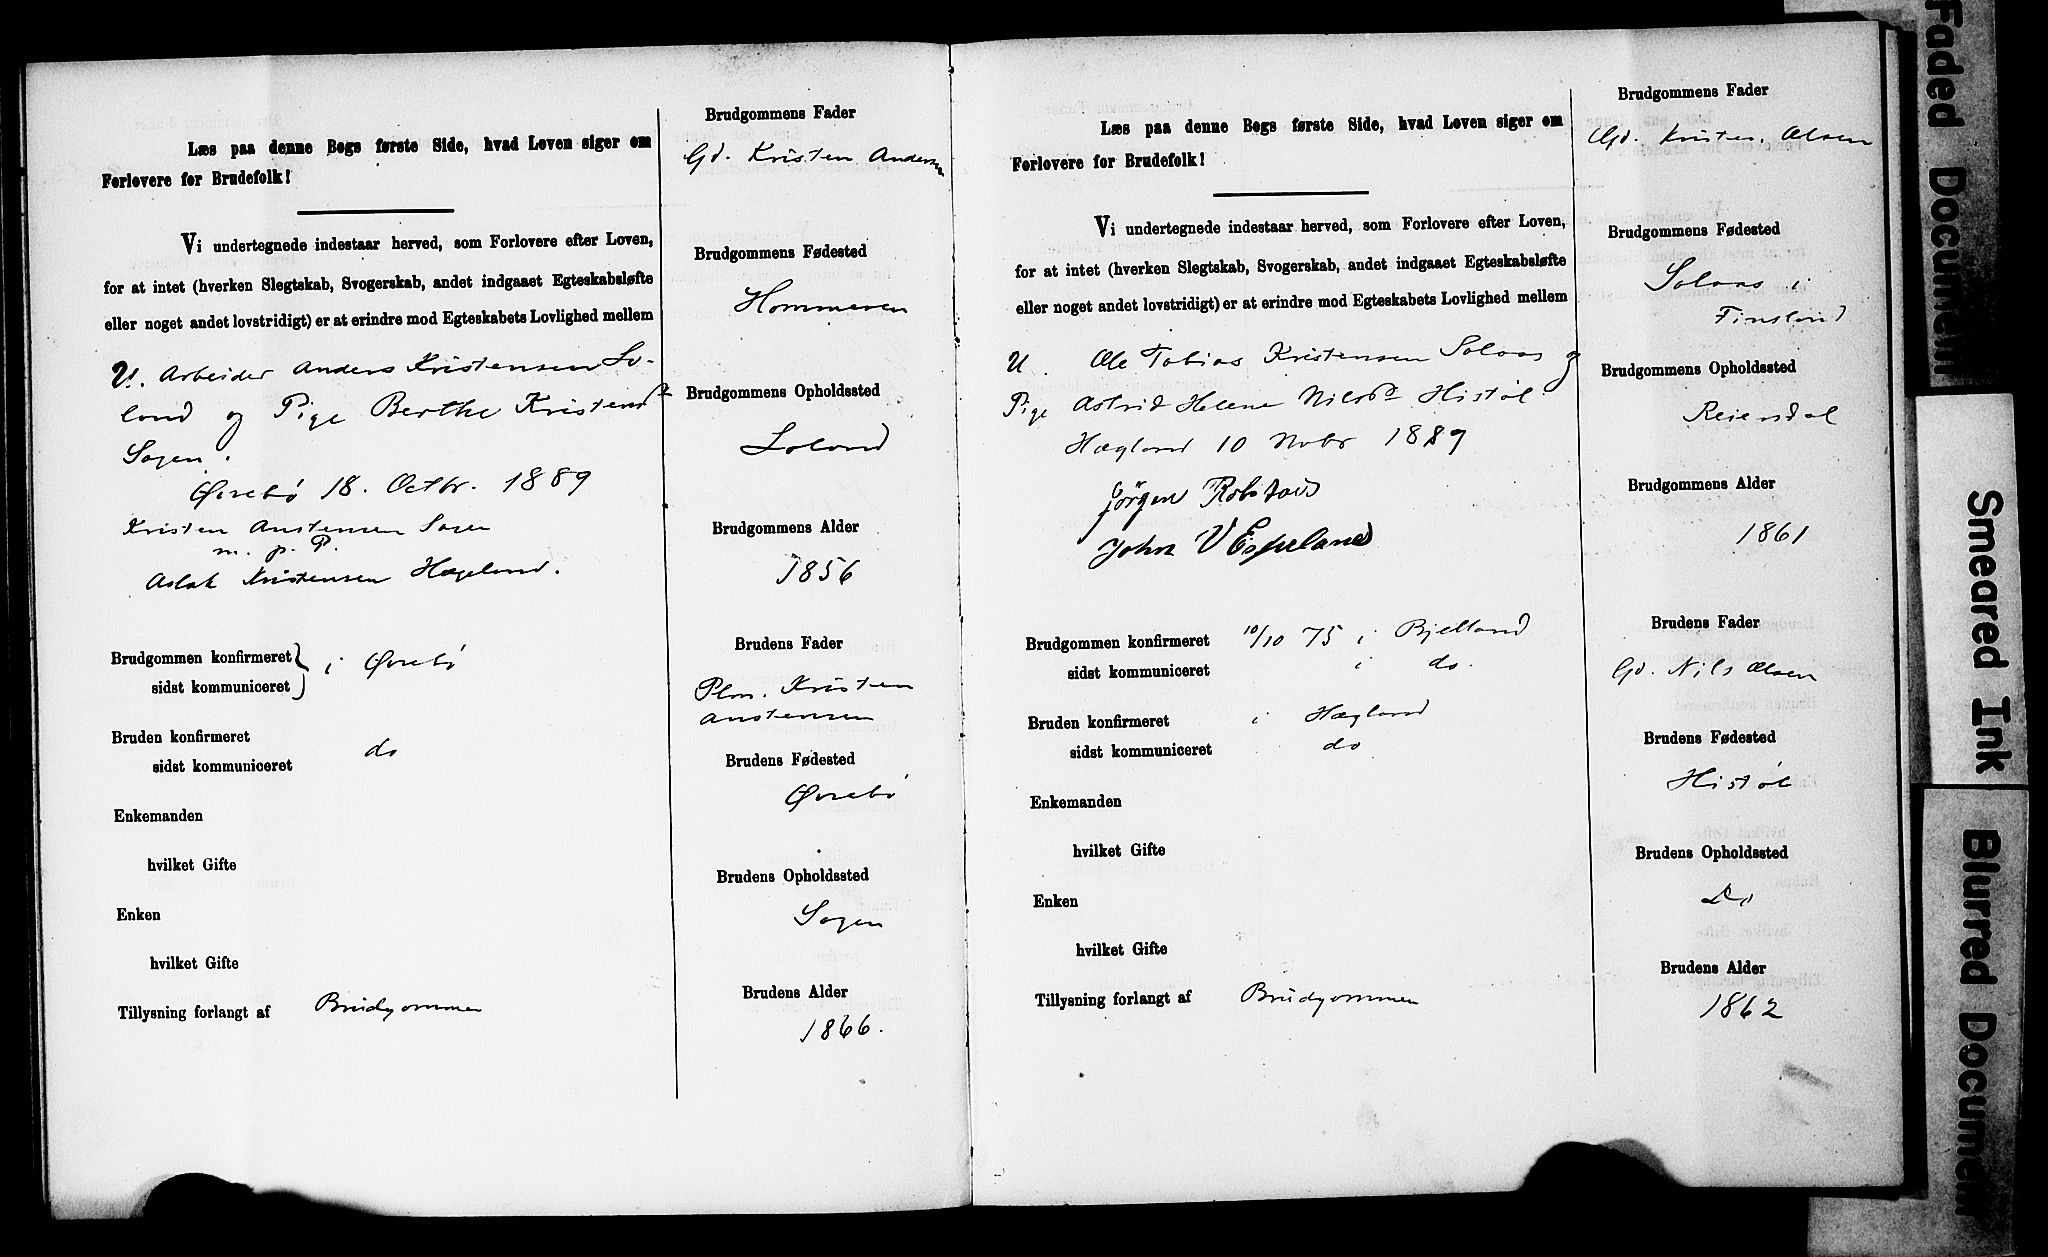 Læs paa denne Bogs første Side, hvad Loven siger om
Forlovere for Brudefolk!
Vi undertegnede indestaar herved, som Forlovere efter Loven,
for at intet (hverken Slegtskab, Svogerskab, andet indgaaet Egteskabsløfte
eller noget andet lovstridigt) er at erindre mod Egteskabets Lovlighed mellem
U. Arbeider Anders Kristensen Lo-
land og Pige Berthe Kristensd
Øvrebø 18. Octbr. 1889
Kristen Anstensen
m. p. P.
Aslak Kristensen Hægeland.
Brudgommen konfirmeret
sidst kommuniceret } i Øvrebø
Bruden konfirmeret
sidst kommuniceret do
Enkemanden
hvilket Gifte
Enken
hvilket Gifte
Tillysning forlangt af Brudgommen
Brudgommens Fader
Gd. Kristen Andersen
Brudgommens Fødested
Hommeren
Brudgommens Opholdssted
Loland
Brudgommens Alder
1856
Brudens Fader
Plm. Kristen
Anstensen
Brudens Fødested
Øvrebø
Brudens Opholdssted
Brudens Alder
1866.
Læs paa denne Bogs første Side, hvad Loven siger om
Forlovere for Brudefolk!
Vi undertegnede indestaar herved, som Forlovere efter Loven,
for at intet (hverken Slegtskab, Svogerskab, andet indgaaet Egteskabsløfte
eller noget andet lovstridigt) er at erindre mod Egteskabets Lovlighed mellem
U. Ole Tobias Kristensen Solaas og
Pige Astrid Helene Nilsd Histøl
Hægland 10 Novbr 1889
Jörgen Robstad
John V Espeland
Brudgommen konfirmeret 10/10 75 i Bjelland
sidst kommuniceret i do.
Bruden konfirmeret i Hægland
sidst kommuniceret do
Enkemanden
hvilket Gifte
Enken
hvilket Gifte
Tillysning forlangt af Brudgommen
Brudgommens Fader
Gd. Kristen Olsen
Brudgommens Fødested
Solaas i
Finsland
Brudgommens Opholdssted
Reiersdal
Brudgommens Alder
1861
Brudens Fader
Gd. Nils Olsen
Brudens Fødested
Histøl
Brudens Opholdssted
Do
Brudens Alder
1862
Faded Document
Smeared Ink
Blurred Document